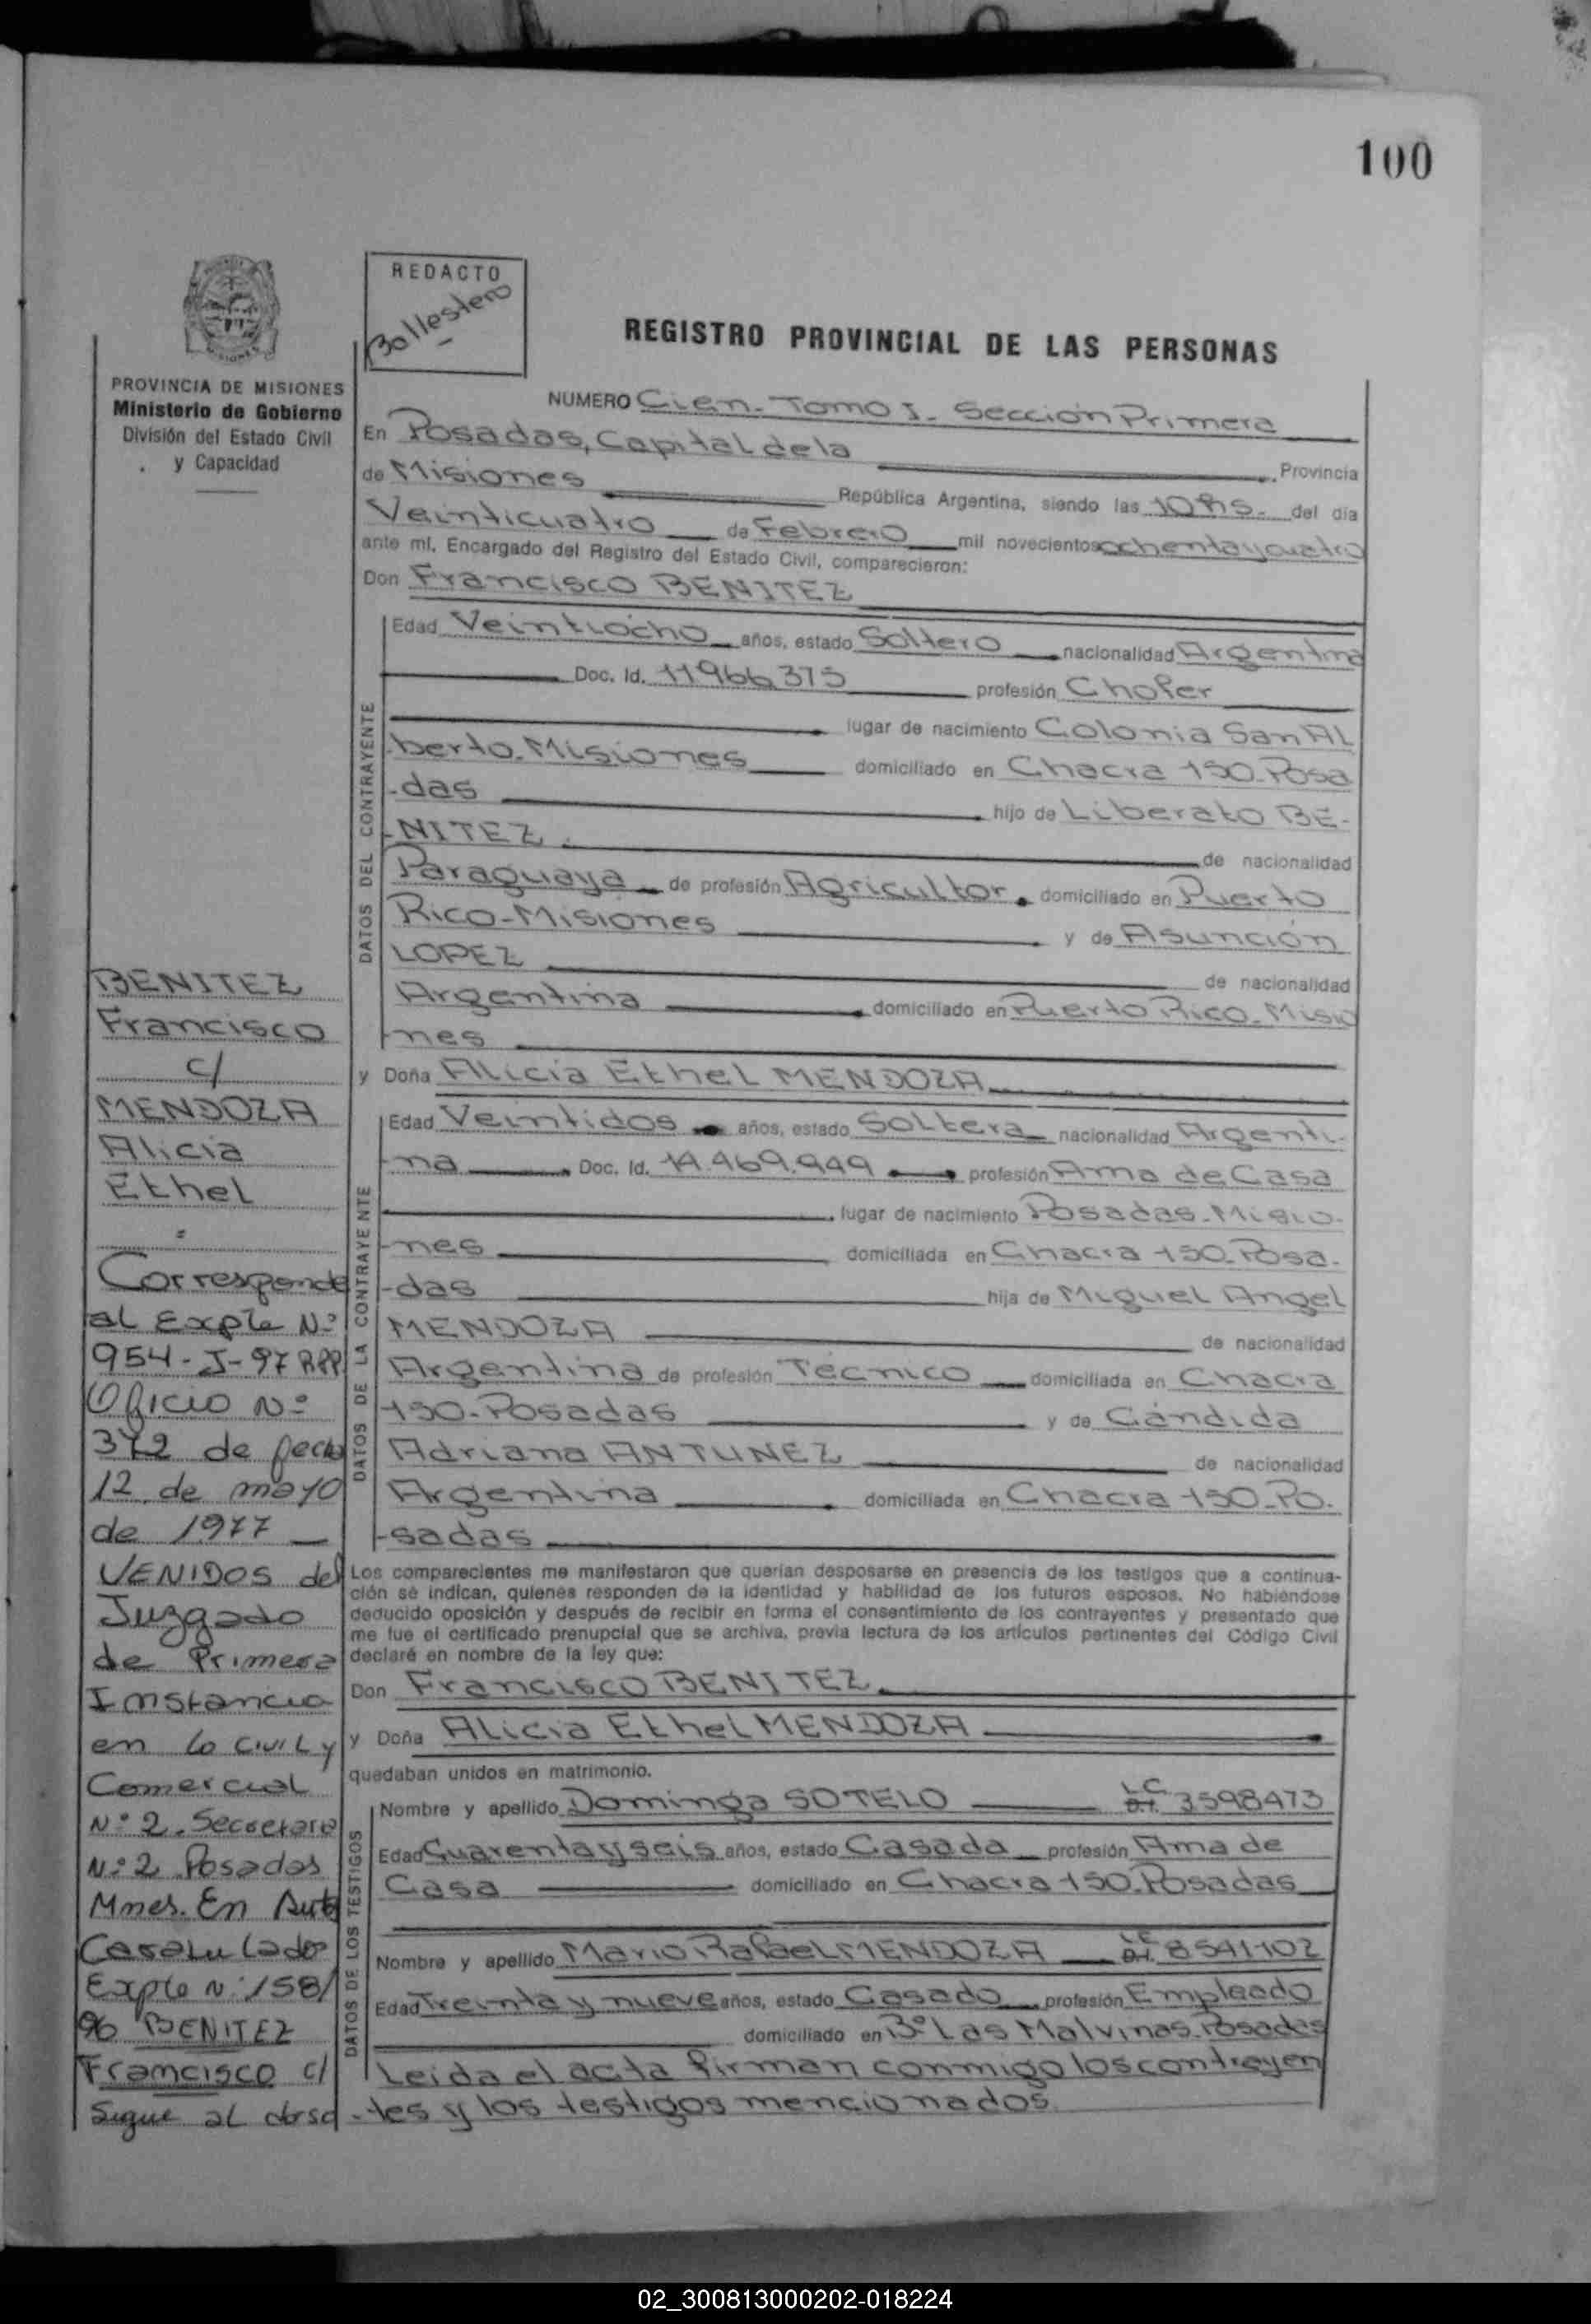 100
REDACTO
Ballestero
REGISTRO PROVINCIAL DE LAS PERSONAS
PROVINCIA DE MISIONES
Ministerio de Gobierno
División del Estado Civil
y Capacidad
NUMERO Cien - Tomo I - Sección Primera
En Posadas, Capital de la Provincia
de Misiones República Argentina, siendo las 10 hs. del día
Veinticuatro de Febrero mil novecientos ochenta y cuatro
ante mí, Encargado del Registro del Estado Civil, comparecieron:
Don Francisco BENITEZ
DATOS DEL CONTRAYENTE
Edad Veintiocho años, estado Soltero nacionalidad Argentina
Doc. Id. 11966375 profesión Chofer
lugar de nacimiento Colonia San Al
berto. Misiones domiciliado en Chacra 150-Posa
-das hijo de Liberato BE-
-NITEZ de nacionalidad
Paraguaya de profesión Agricultor. domiciliado en Puerto
Rico-Misiones y de Asunción
LOPEZ de nacionalidad
Argentina domiciliado en Puerto Rico-Misio
-nes
y Doña Alicia Ethel MENDOZA
DATOS DE LA CONTRAYENTE
Edad Veintidos años, estado Soltera nacionalidad Argenti-
-na Doc. Id. 14.469.949 profesión Ama de Casa
lugar de nacimiento Posadas-Misio-
-nes domiciliada en Chacra 150-Posa-
-das hija de Miguel Angel
MENDOZA de nacionalidad
Argentina de profesión Técnico domiciliada en Chacra
150-Posadas y de Cándida
Adriana ANTUNEZ de nacionalidad
Argentina domiciliada en Chacra 150-Po-
-sadas
Los comparecientes me manifestaron que querían desposarse en presencia de los testigos que a continua-
ción se indican, quienes responden de la identidad y habilidad de los futuros esposos. No habiéndose
deducido oposición y después de recibir en forma el consentimiento de los contrayentes y presentado que
me fue el certificado prenupcial que se archiva, previa lectura de los artículos pertinentes del Código Civil
declaré en nombre de la ley que:
Don Francisco BENITEZ
y Doña Alicia Ethel MENDOZA
quedaban unidos en matrimonio.
DATOS DE LOS TESTIGOS
Nombre y apellido Dominga SOTELO L.C. 3598473
Edad Cuarenta y seis años, estado Casada profesión Ama de
Casa domiciliado en Chacra 150-Posadas
Nombre y apellido Mario Rafael MENDOZA L.E. 8541102
Edad Treinta y nueve años, estado Casado profesión Empleado
domiciliado en Bº Las Malvinas-Posadas
Leída el acta firman conmigo los contrayen
-tes y los testigos mencionados
BENITEZ
Francisco
c/
MENDOZA
Alicia
Ethel
=
Corresponde
al Expte Nº
954-J-97 RPP
Oficio Nº
372 de fecha
12 de mayo
de 1977
VENIDOS del
Juzgado
de Primera
Instancia
en lo CIVIL y
Comercial
Nº 2. Secretaria
Nº 2 Posadas
Mnes. En Aut
Caratulados
Expte Nº 158/
96 BENITEZ
Francisco c/
Sigue al dorso
02_300813000202-018224